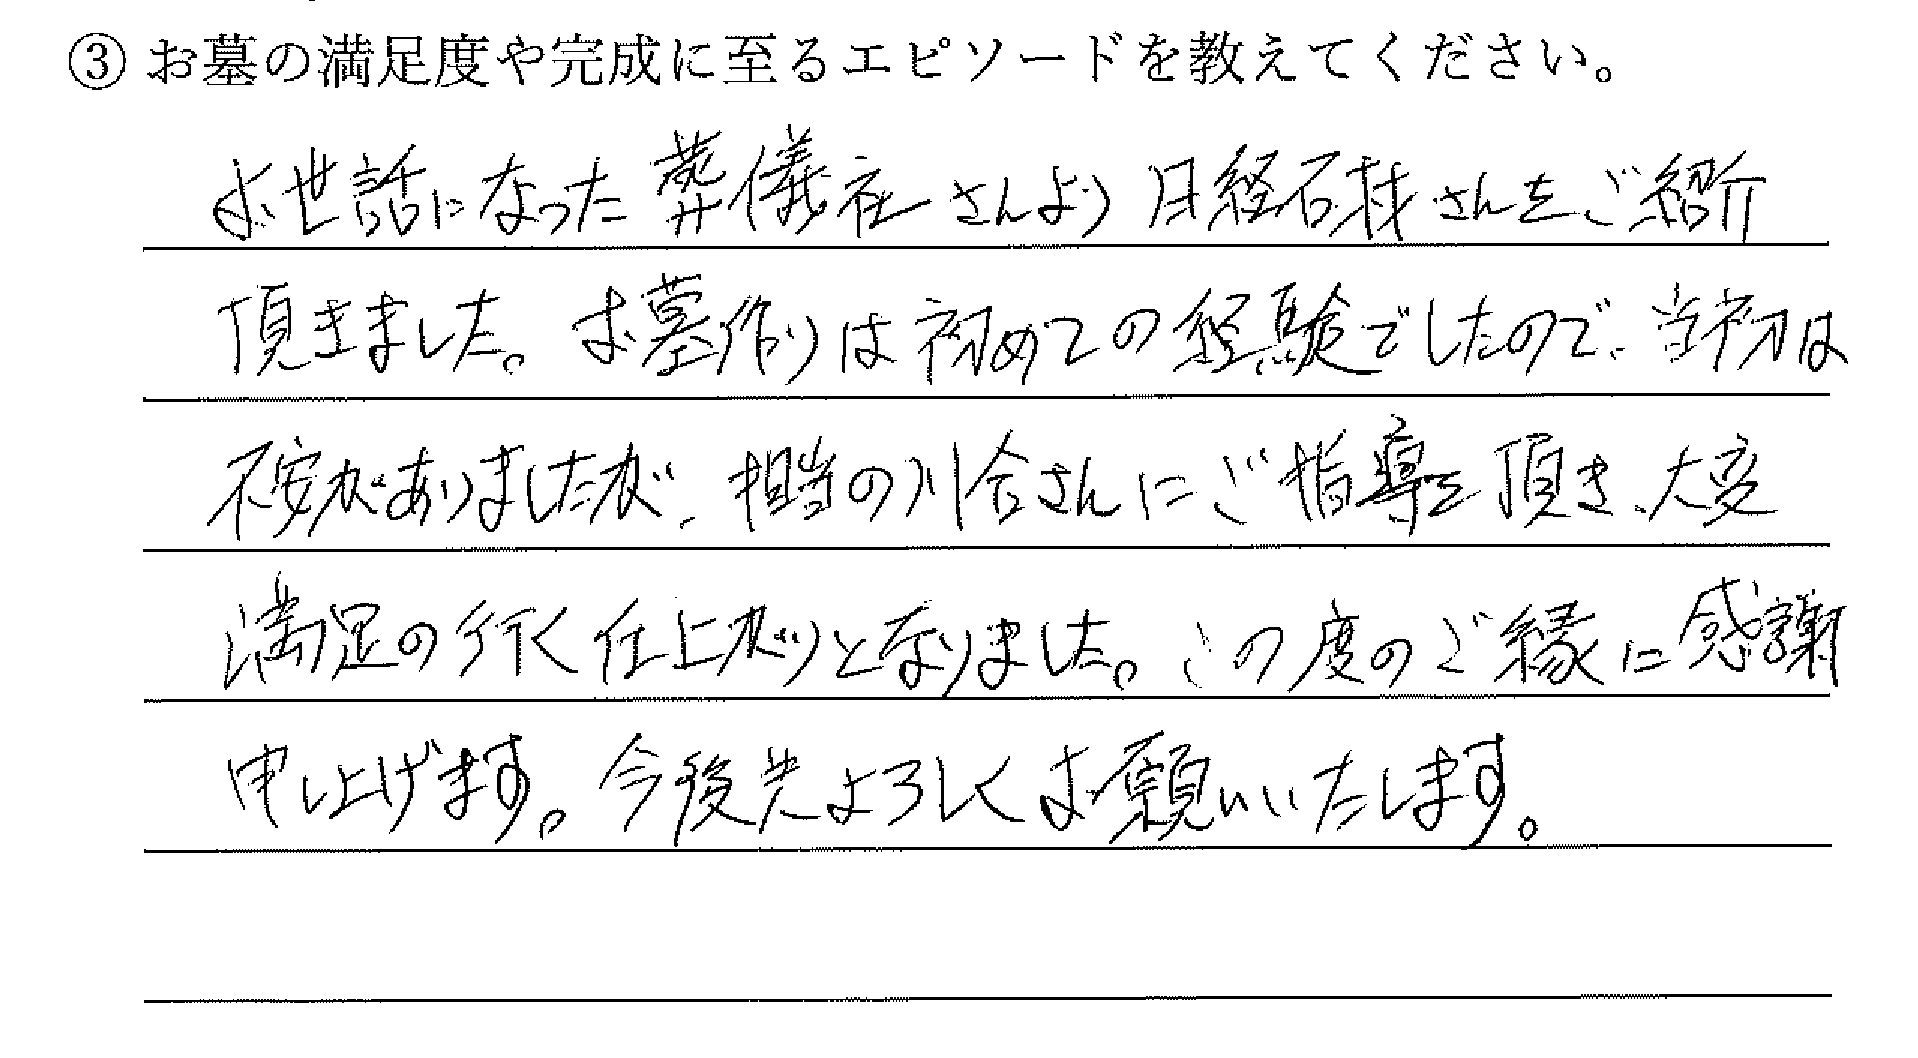 ③ お墓の満足度や完成に至るエピソードを教えてください。
お世話になった葬儀社さんより日経石材さんをご紹介
頂きました。お墓作りは初めての経験でしたので、当初は
不安がありましたが、担当の川合さんにご指導を頂き、大変
満足の行く仕上がりとなりました。この度のご縁に感謝
申し上げます。今後共よろしくお願いいたします。